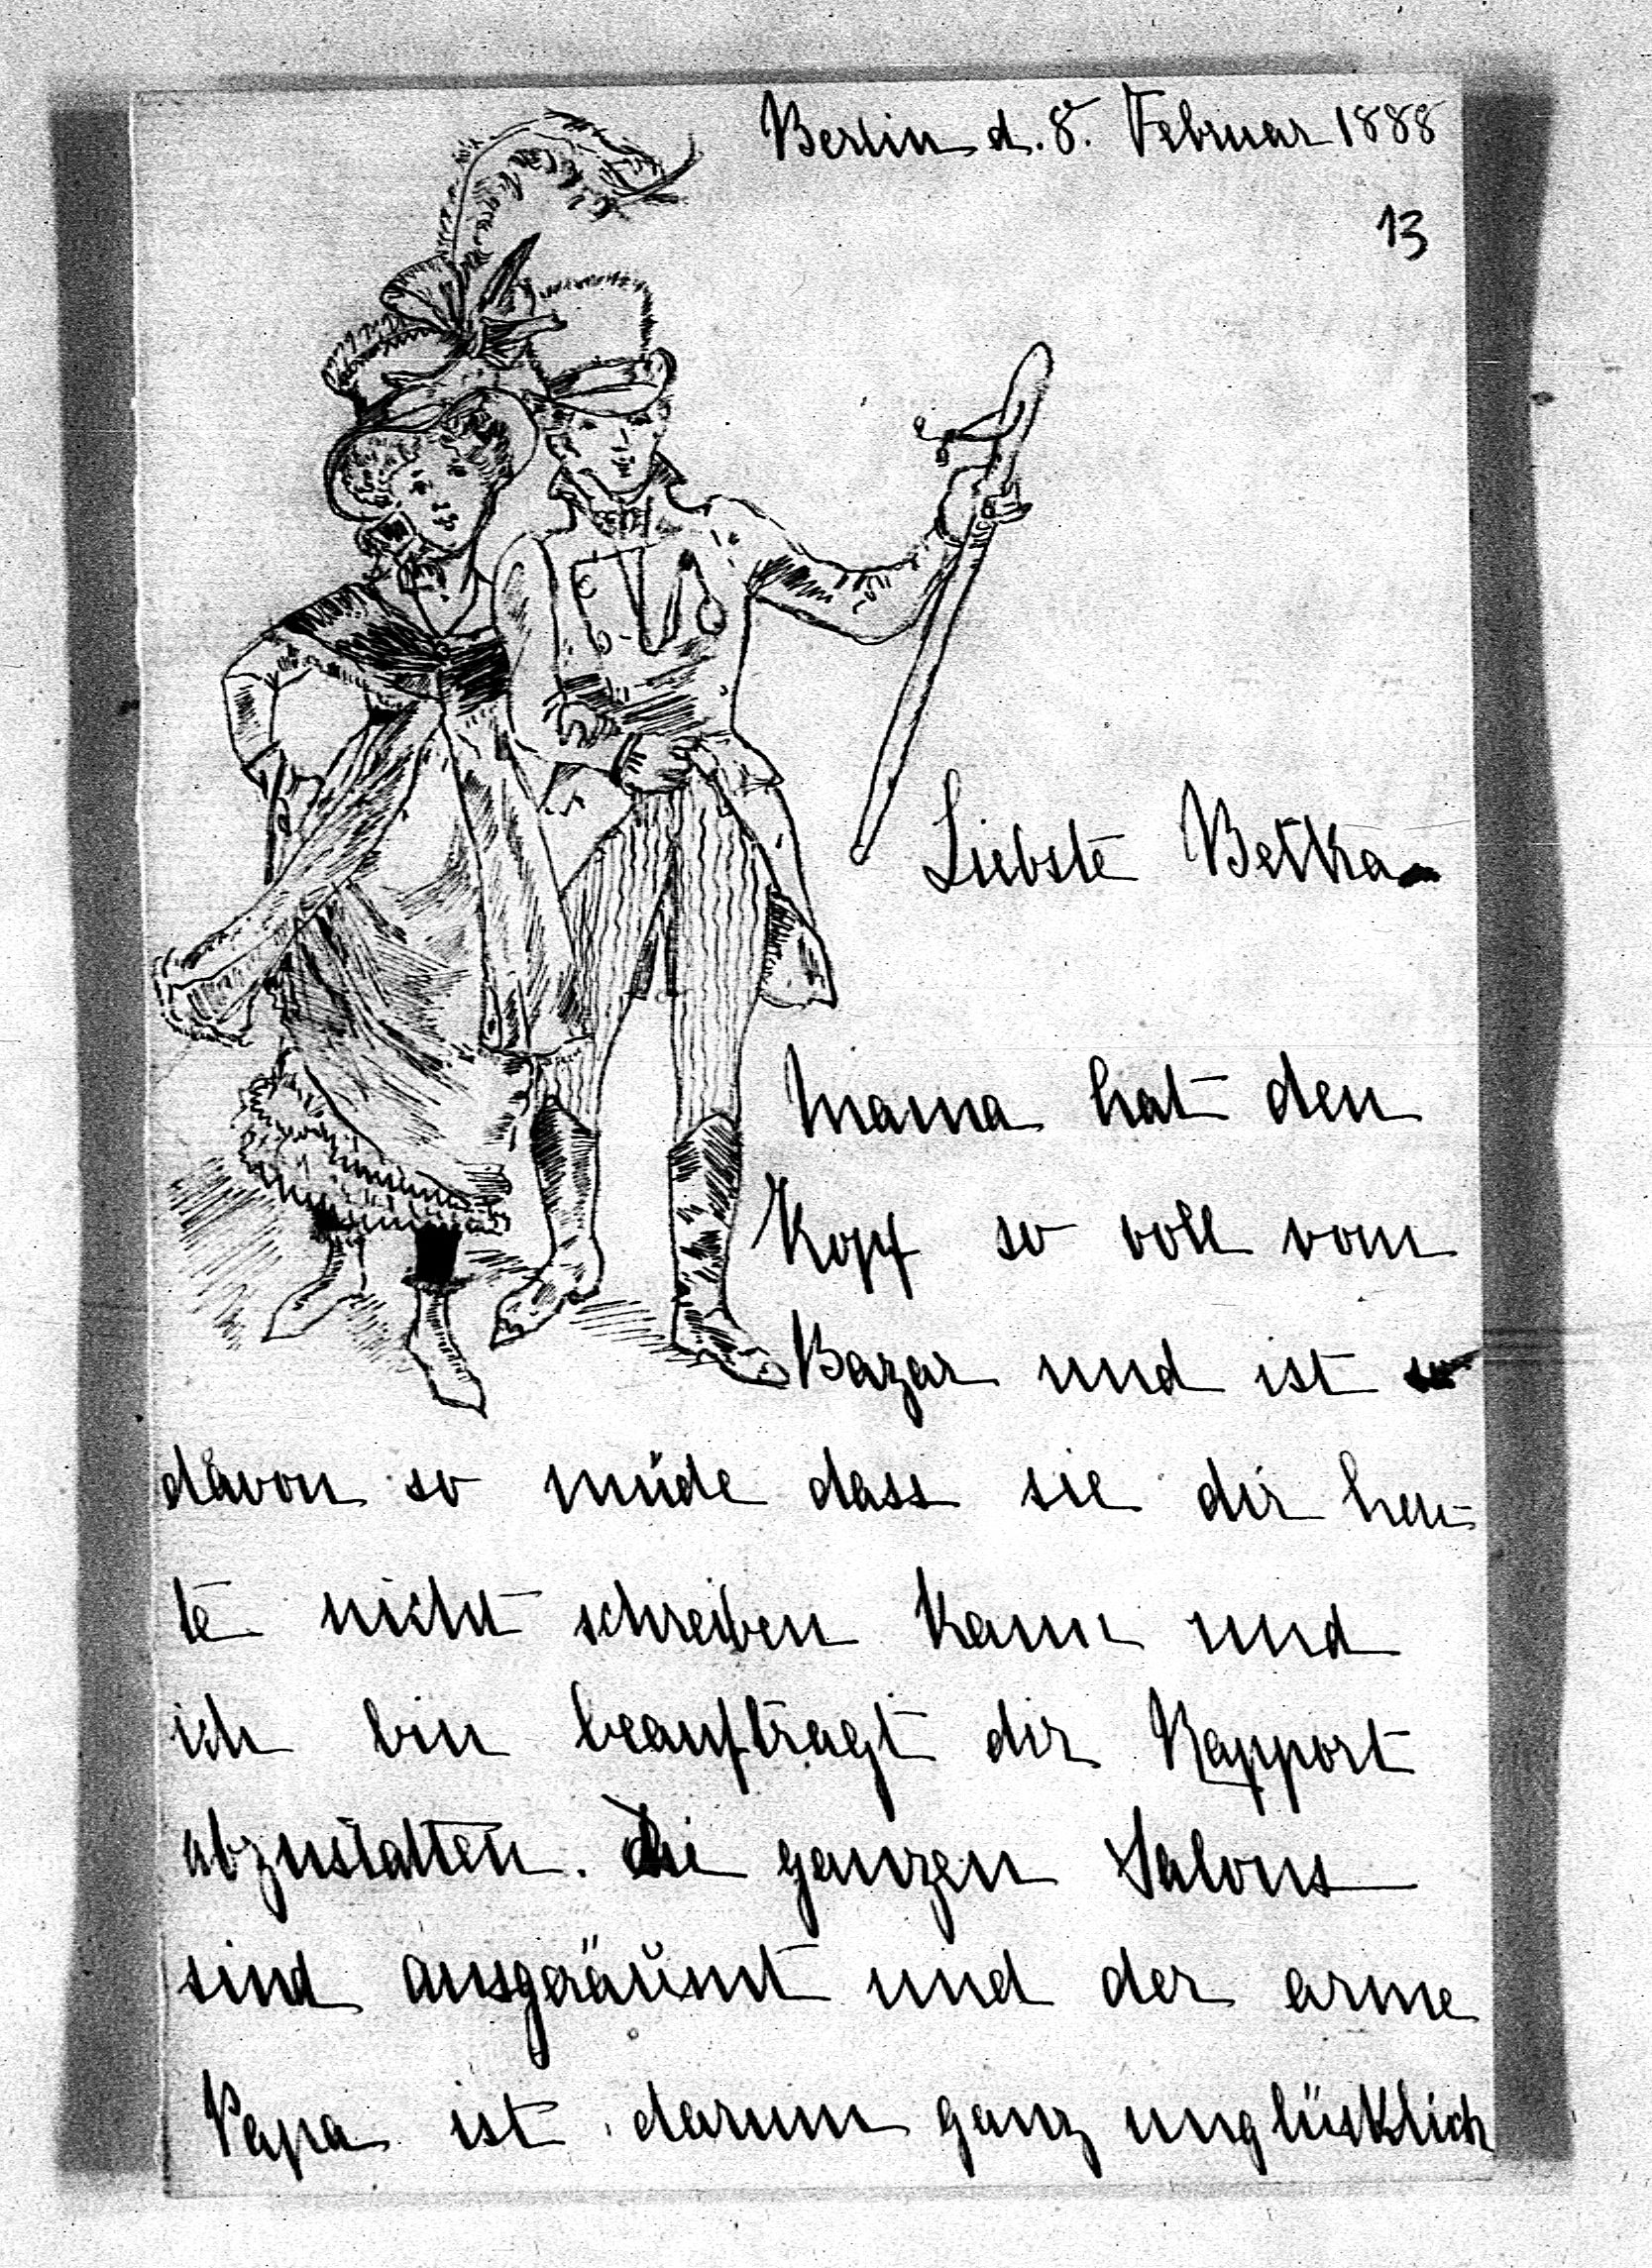 Berlin d. 8. Februar 1888
13
Liebste Betka
Mama hat den
Kopf so voll vom
Bazar und ist
davon so müde dass sie dir heu-
te nicht schreiben kann und
ich bin beauftragt dir Rapport
abzustatten. Die ganzen Salons
sind ausgeräumt und der arme
Papa ist darum ganz unglücklich